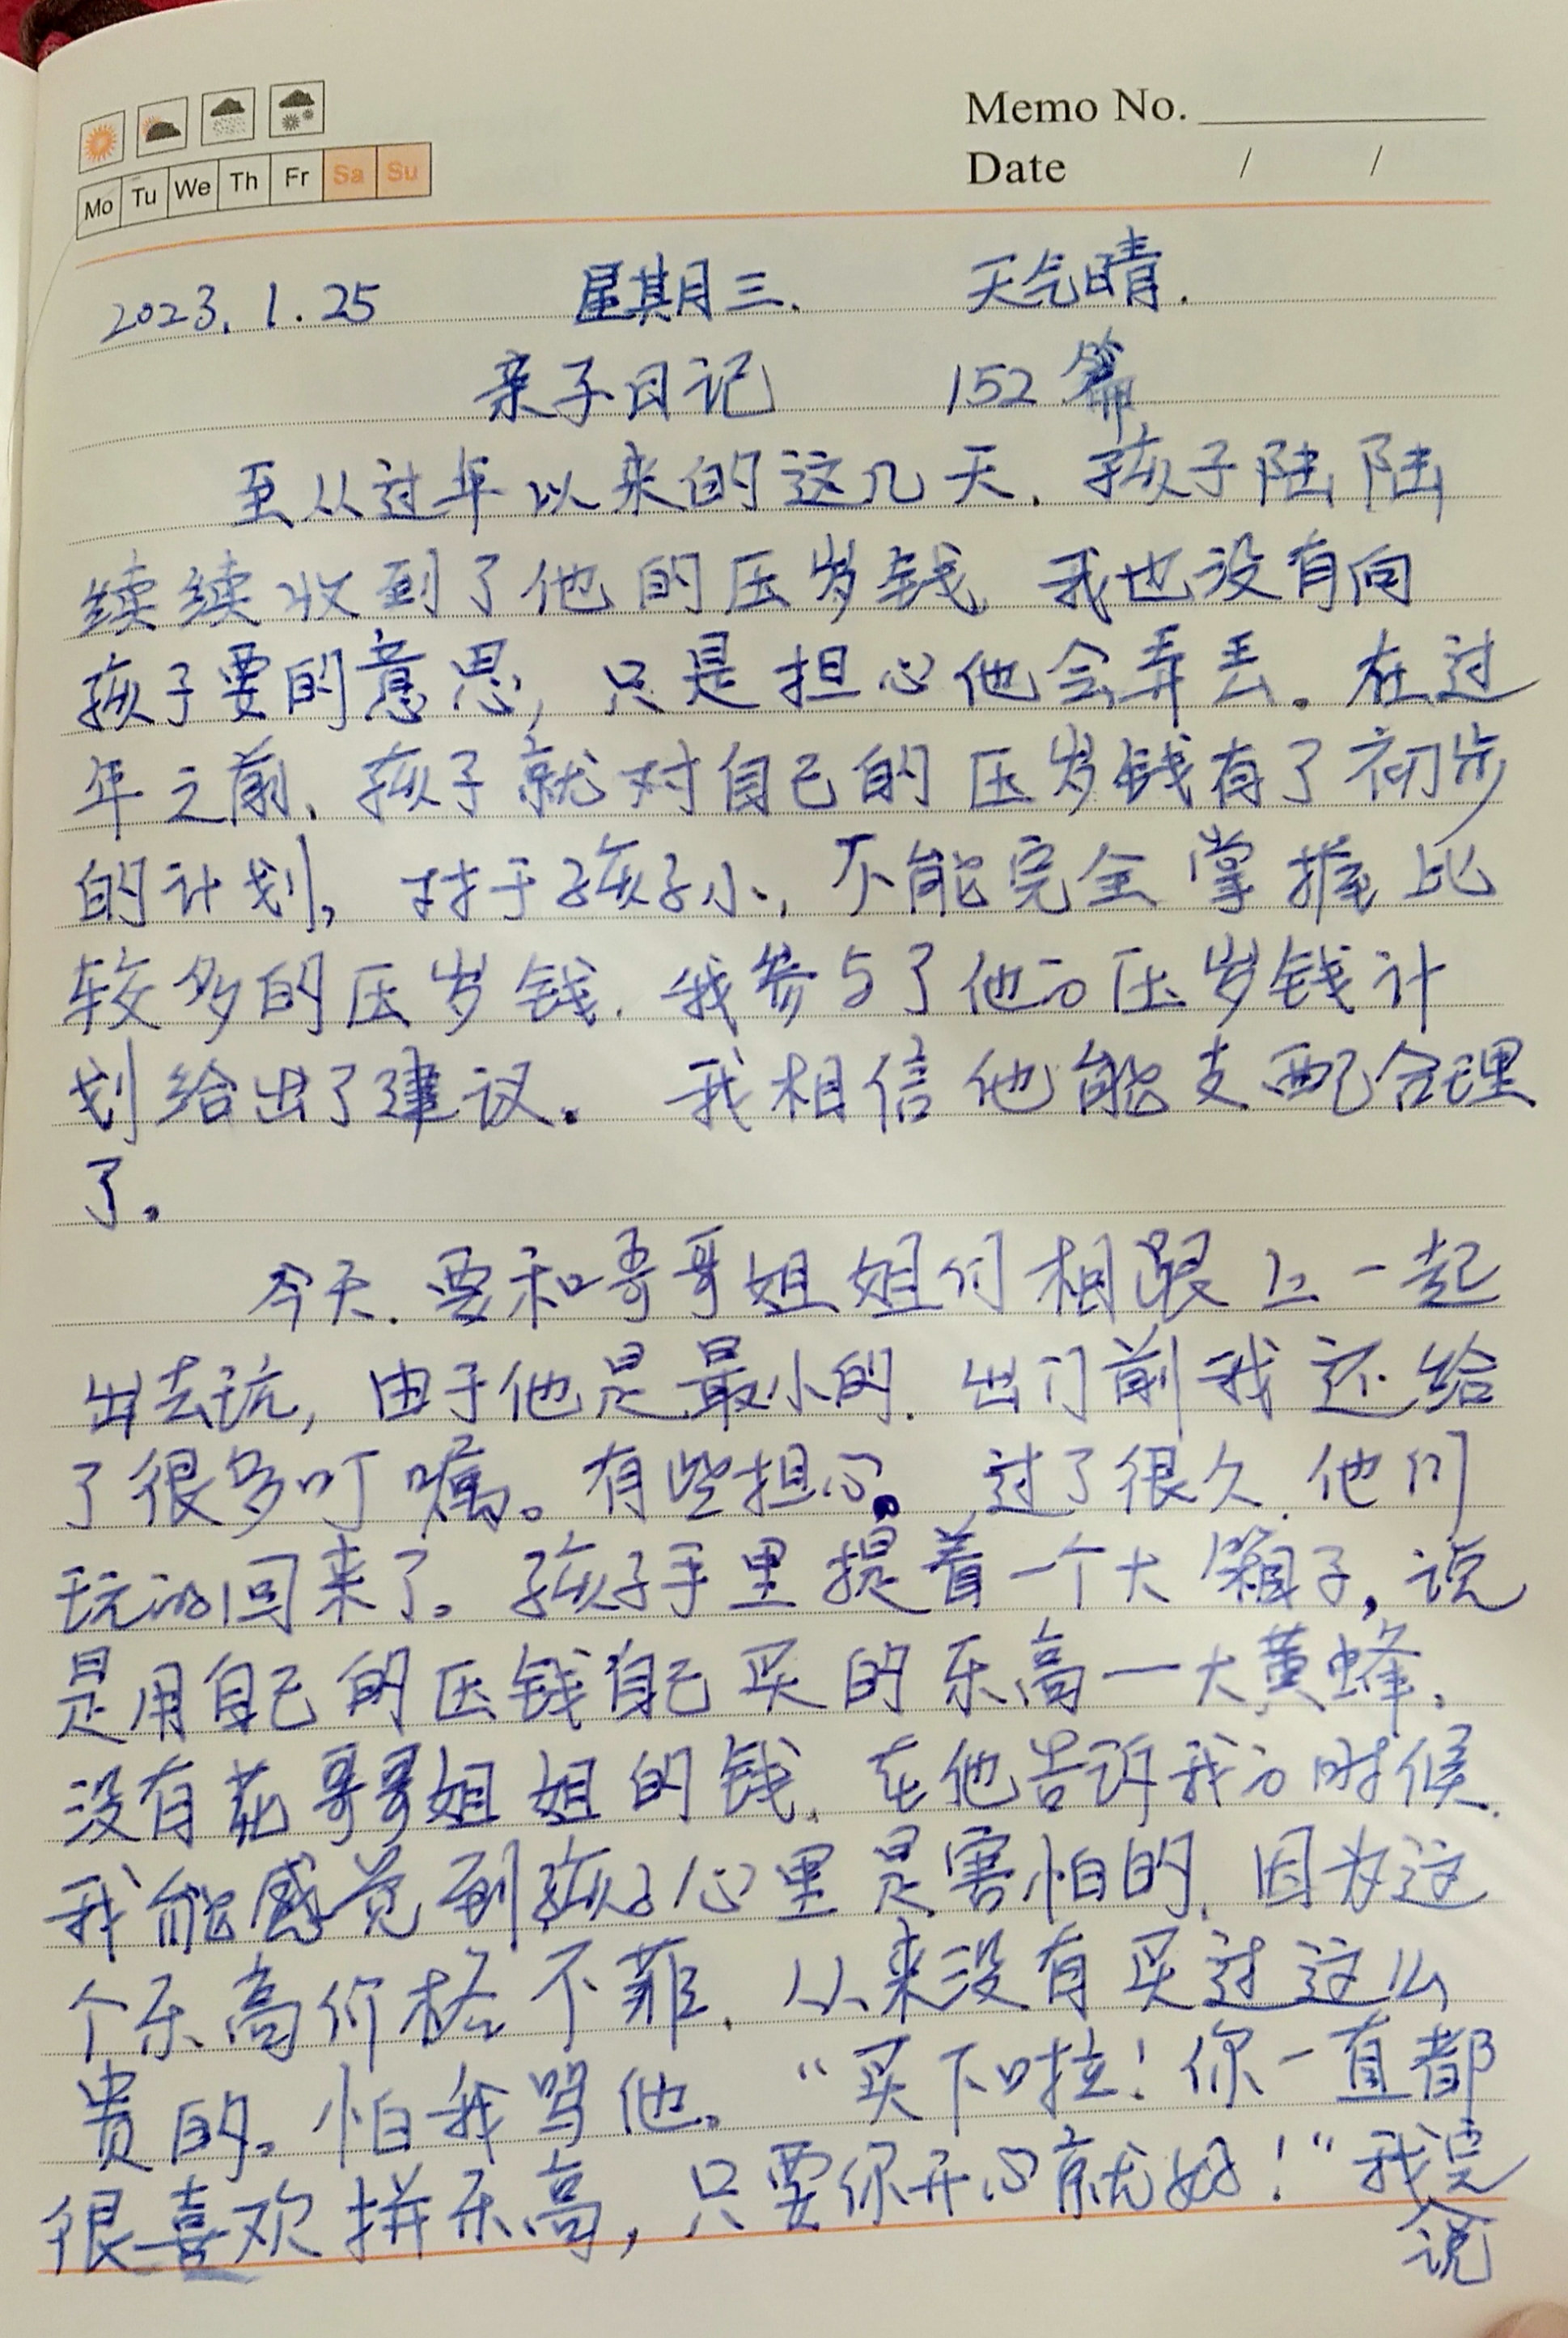 Memo No.
Mo Tu We Th Fr Sa Su
Date / /
2023.1.25 星期三. 天气晴.
亲子日记 152篇
至从过年以来的这几天,孩子陆陆
续续收到了他的压岁钱,我也没有向
孩子要的意思,只是担心他会弄丢。在过
年之前,孩子就对自己的压岁钱有了初步
的计划,对于孩子小,不能完全掌握比
较多的压岁钱.我参与了他的压岁钱计
划给出了建议。我相信他能支配合理
了。
今天.要和哥哥姐姐们相跟上一起
出去玩,由于他是最小的.出门前我还给
了很多叮嘱。有些担心。过了很久.他们
玩的回来了。孩子手里提着一个大箱子,说
是用自己的压钱自己买的乐高一大黄蜂,
没有花哥哥姐姐的钱.在他告诉我的时候.
我能感觉到孩子心里是害怕的,因为这
个乐高价格不菲.从来没有买过这么
贵的。怕我骂他。“买下啦!你一直都
很喜欢拼乐高,只要你开心就好!“我完
说